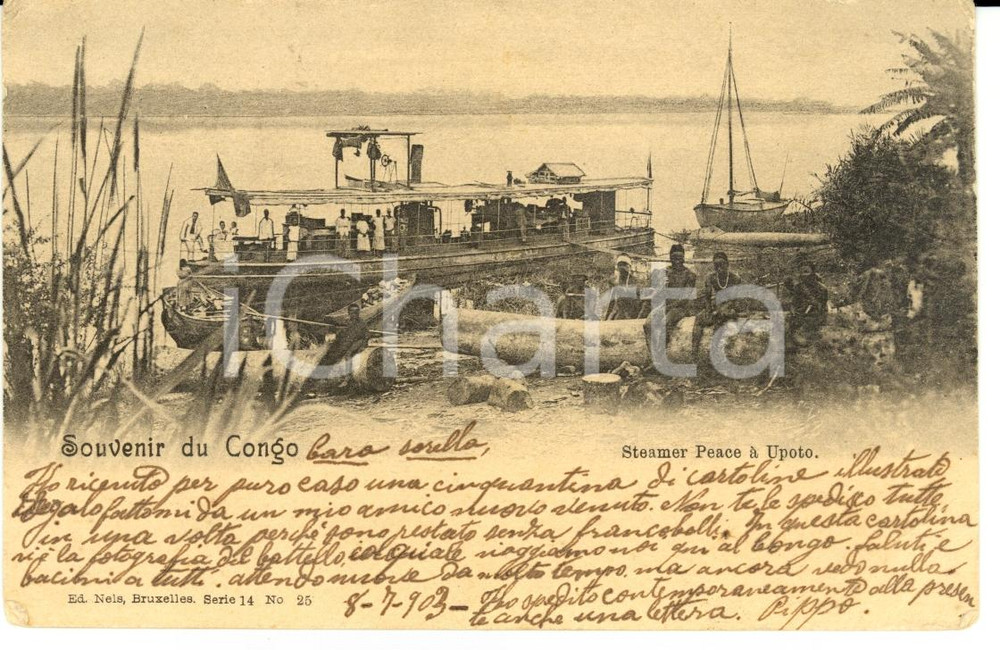 iCharta
Souvenir du Congo Cara sorella,
Steamer Peace à Upoto.
Ho ricevuto per puro caso una cinquantina di cartoline illustrate
Regalo fattomi da un mio amico nuovo venuto. Non te le spedisco tutte
in una volta perchè sono restato senza francobolli. In questa cartolina
v'è la fotografia del battello col quale viaggiamo noi qui al Congo. Saluti e
baci mi a tutti. Attendo nuove da molto tempo, ma ancora vedo nulla.
Ed. Nels, Bruxelles. Serie 14 No 25
8-7-903- Ho spedito contemporaneamente alla presen
te anche una lettera. Pippo.